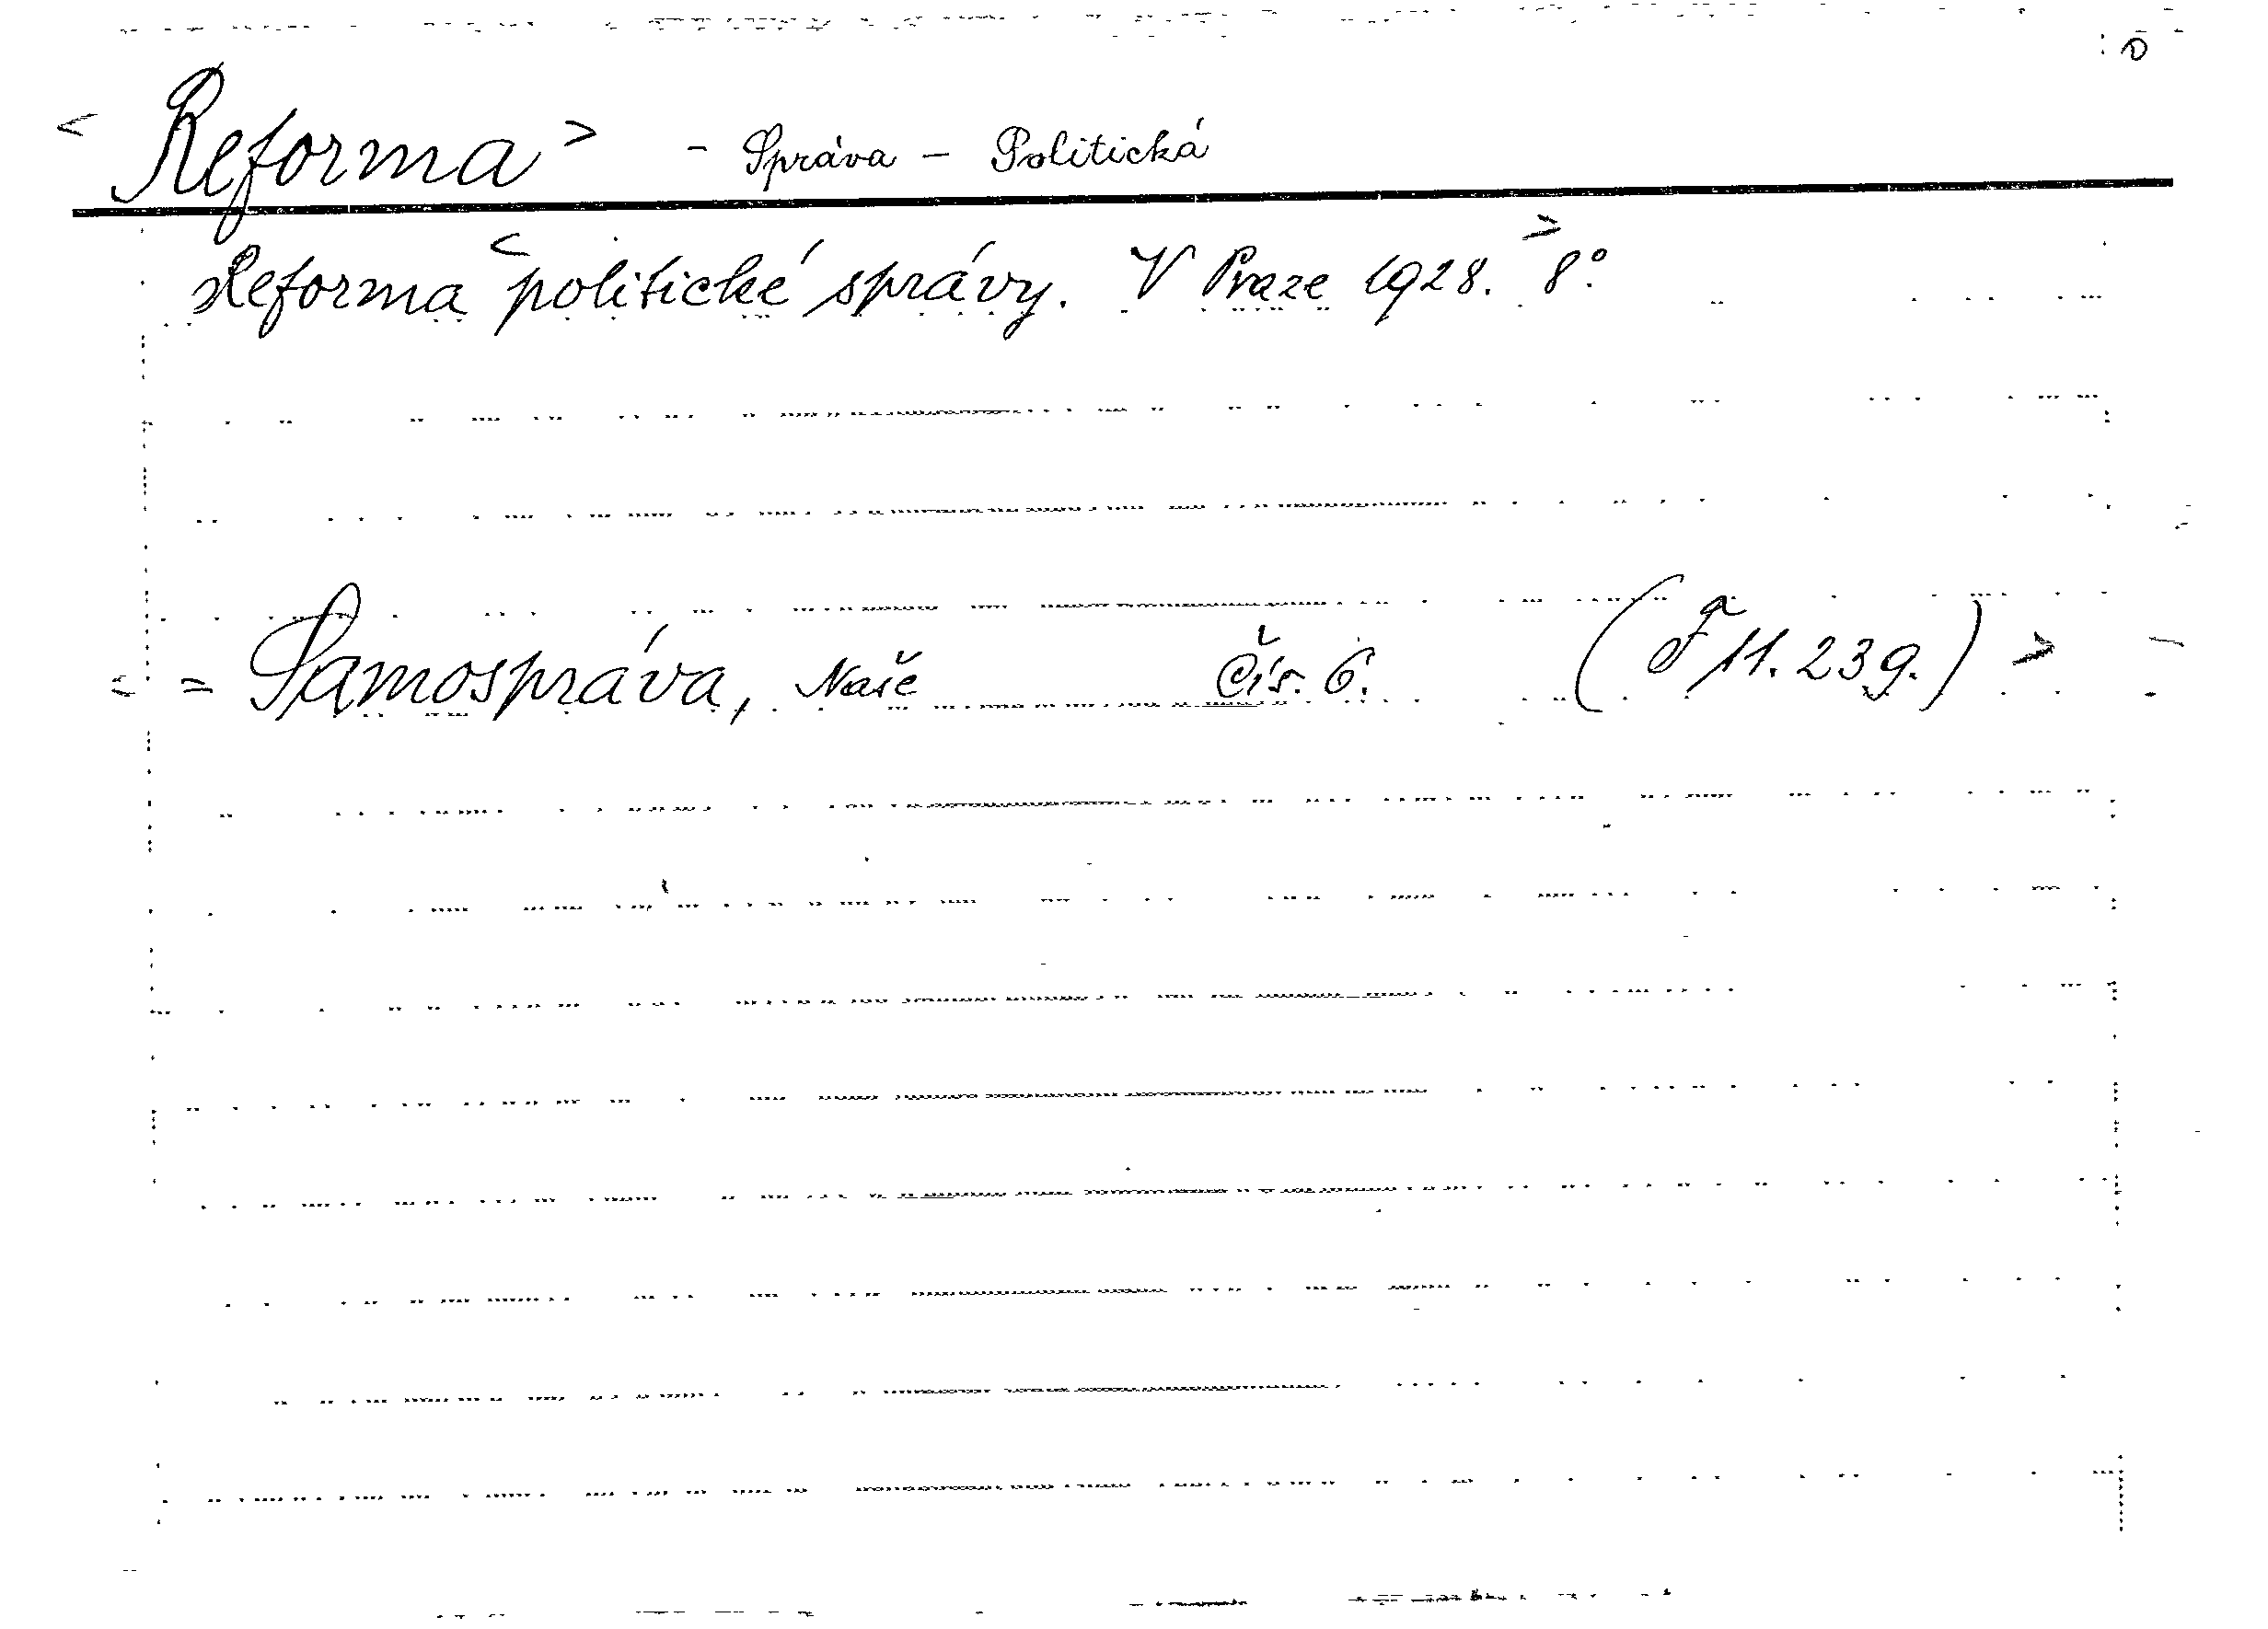 < Reforma > - Správa - Politická
Reforma < politické správy. V Praze 1928. > 8°.
< = Samospráva, Naše Čís. 6. (F 11.239.) >